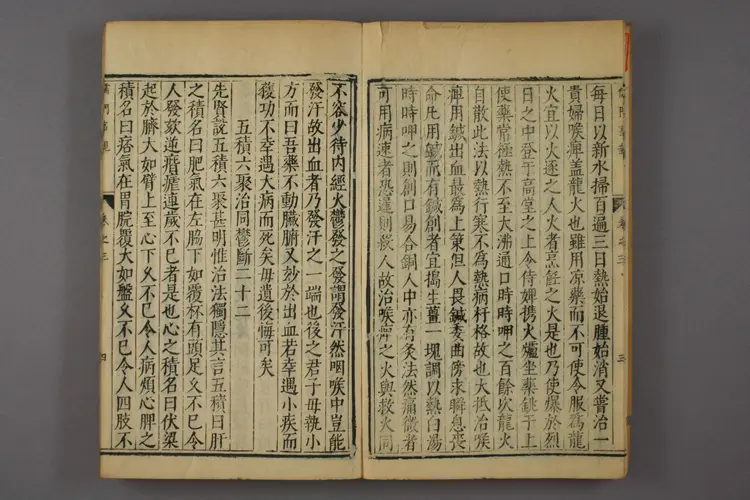 每日以新水掃百過三日熱始退腫始消又嘗治一
貴婦喉痺蓋龍火也雖用涼藥而不可使令服爲龍
火宜以火逐之人火者烹飪之火是也乃使爆於烈
日之中登于高堂之上令侍婢携火爐坐藥銚于上
使藥常極熱不至大沸通口時時呷之百餘次龍火
自散此法以熱行寒不爲熱病扞格故也大抵治喉
痺用鍼出血最爲上策但人畏鍼委曲旁求瞬息喪
命凡用鍼而有鍼創者宜搗生薑一塊調以熱白湯
時時呷之則創口易合銅人中亦有灸法然痛微者
可用病速者恐遲則殺人故治喉痺之火與救火同
不容少待內經火鬱發之發謂發汗然咽喉中豈能
發汗故出血者乃發汗之一端也後之君子毋執小
方而曰吾藥不動臟腑又妙於出血若幸遇小疾而
獲功不幸遇大病而死矣毋遺後悔可矣
五積六聚治同鬱斷二十二
先賢說五積六聚甚明惟治法獨隱其言五積曰肝
之積名曰肥氣在左脇下如覆杯有頭足久不已令
人發欬逆痎瘧連歲不已者是也心之積名曰伏梁
起於臍大如臂上至心下久不已令人病煩心脾之
積名曰痞氣在胃脘覆大如盤久不已令人四肢不
卷之三
四
三